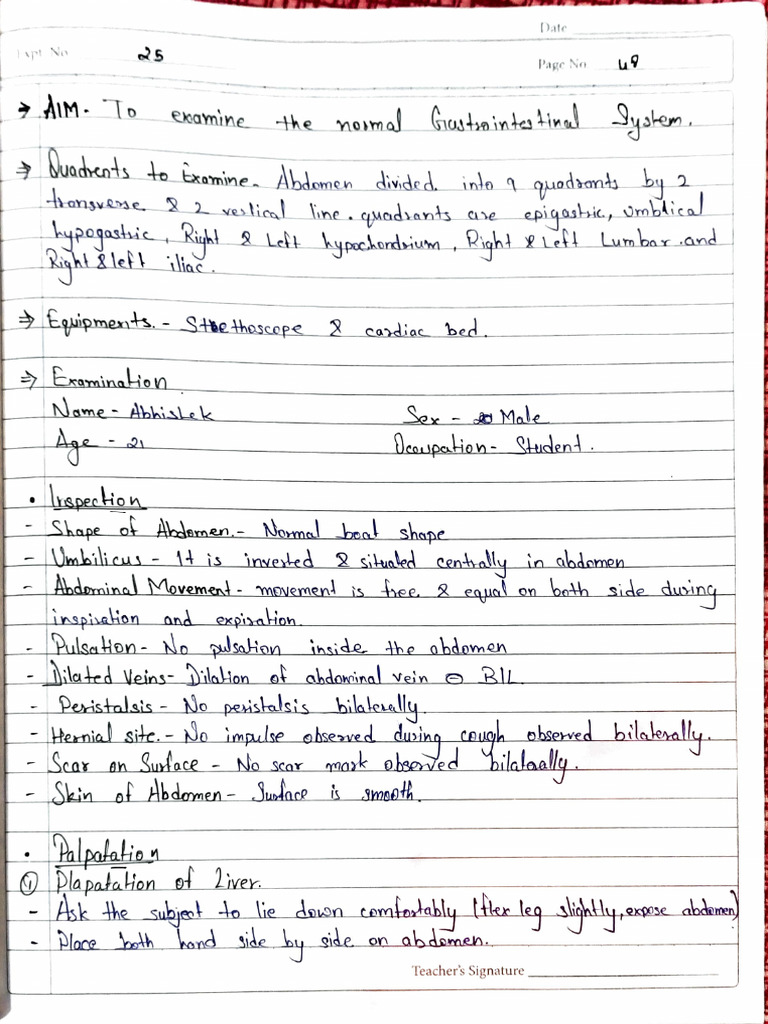 Date
Expt. No. 25
Page No. 48
→ AIM - To examine the normal Gastrointestinal System.
⇒ Quadrents to Examine - Abdomen divided into 9 quadrants by 2
transverse & 2 vertical line. quadrants are epigastric, umblical
hypogastric, Right & Left hypochondrium, Right & Left Lumbar and
Right & left iliac.
⇒ Equipments. - Stethoscope & cardiac bed.
⇒ Examination
Name - Abhishek Sex - Male
Age - 21 Occupation - Student.
• Inspection
- Shape of Abdomen. - Normal boat shape
- Umbilicus - It is inverted & situated centrally in abdomen
- Abdominal Movement - movement is free & equal on both side during
inspiration and expiration.
- Pulsation - No pulsation inside the abdomen
- Dilated Veins - Dilation of abdominal vein ⊖ B/L
- Peristalsis - No peristalsis bilaterally.
- Hernial site. - No impulse observed during cough observed bilaterally.
- Scar on Surface - No scar mark observed bilaterally.
- Skin of Abdomen - Surface is smooth.
• Palpatation
① Plapatation of Liver.
- Ask the subject to lie down comfortably (flex leg slightly, expose abdomen)
- Place both hand side by side on abdomen.
Teacher's Signature